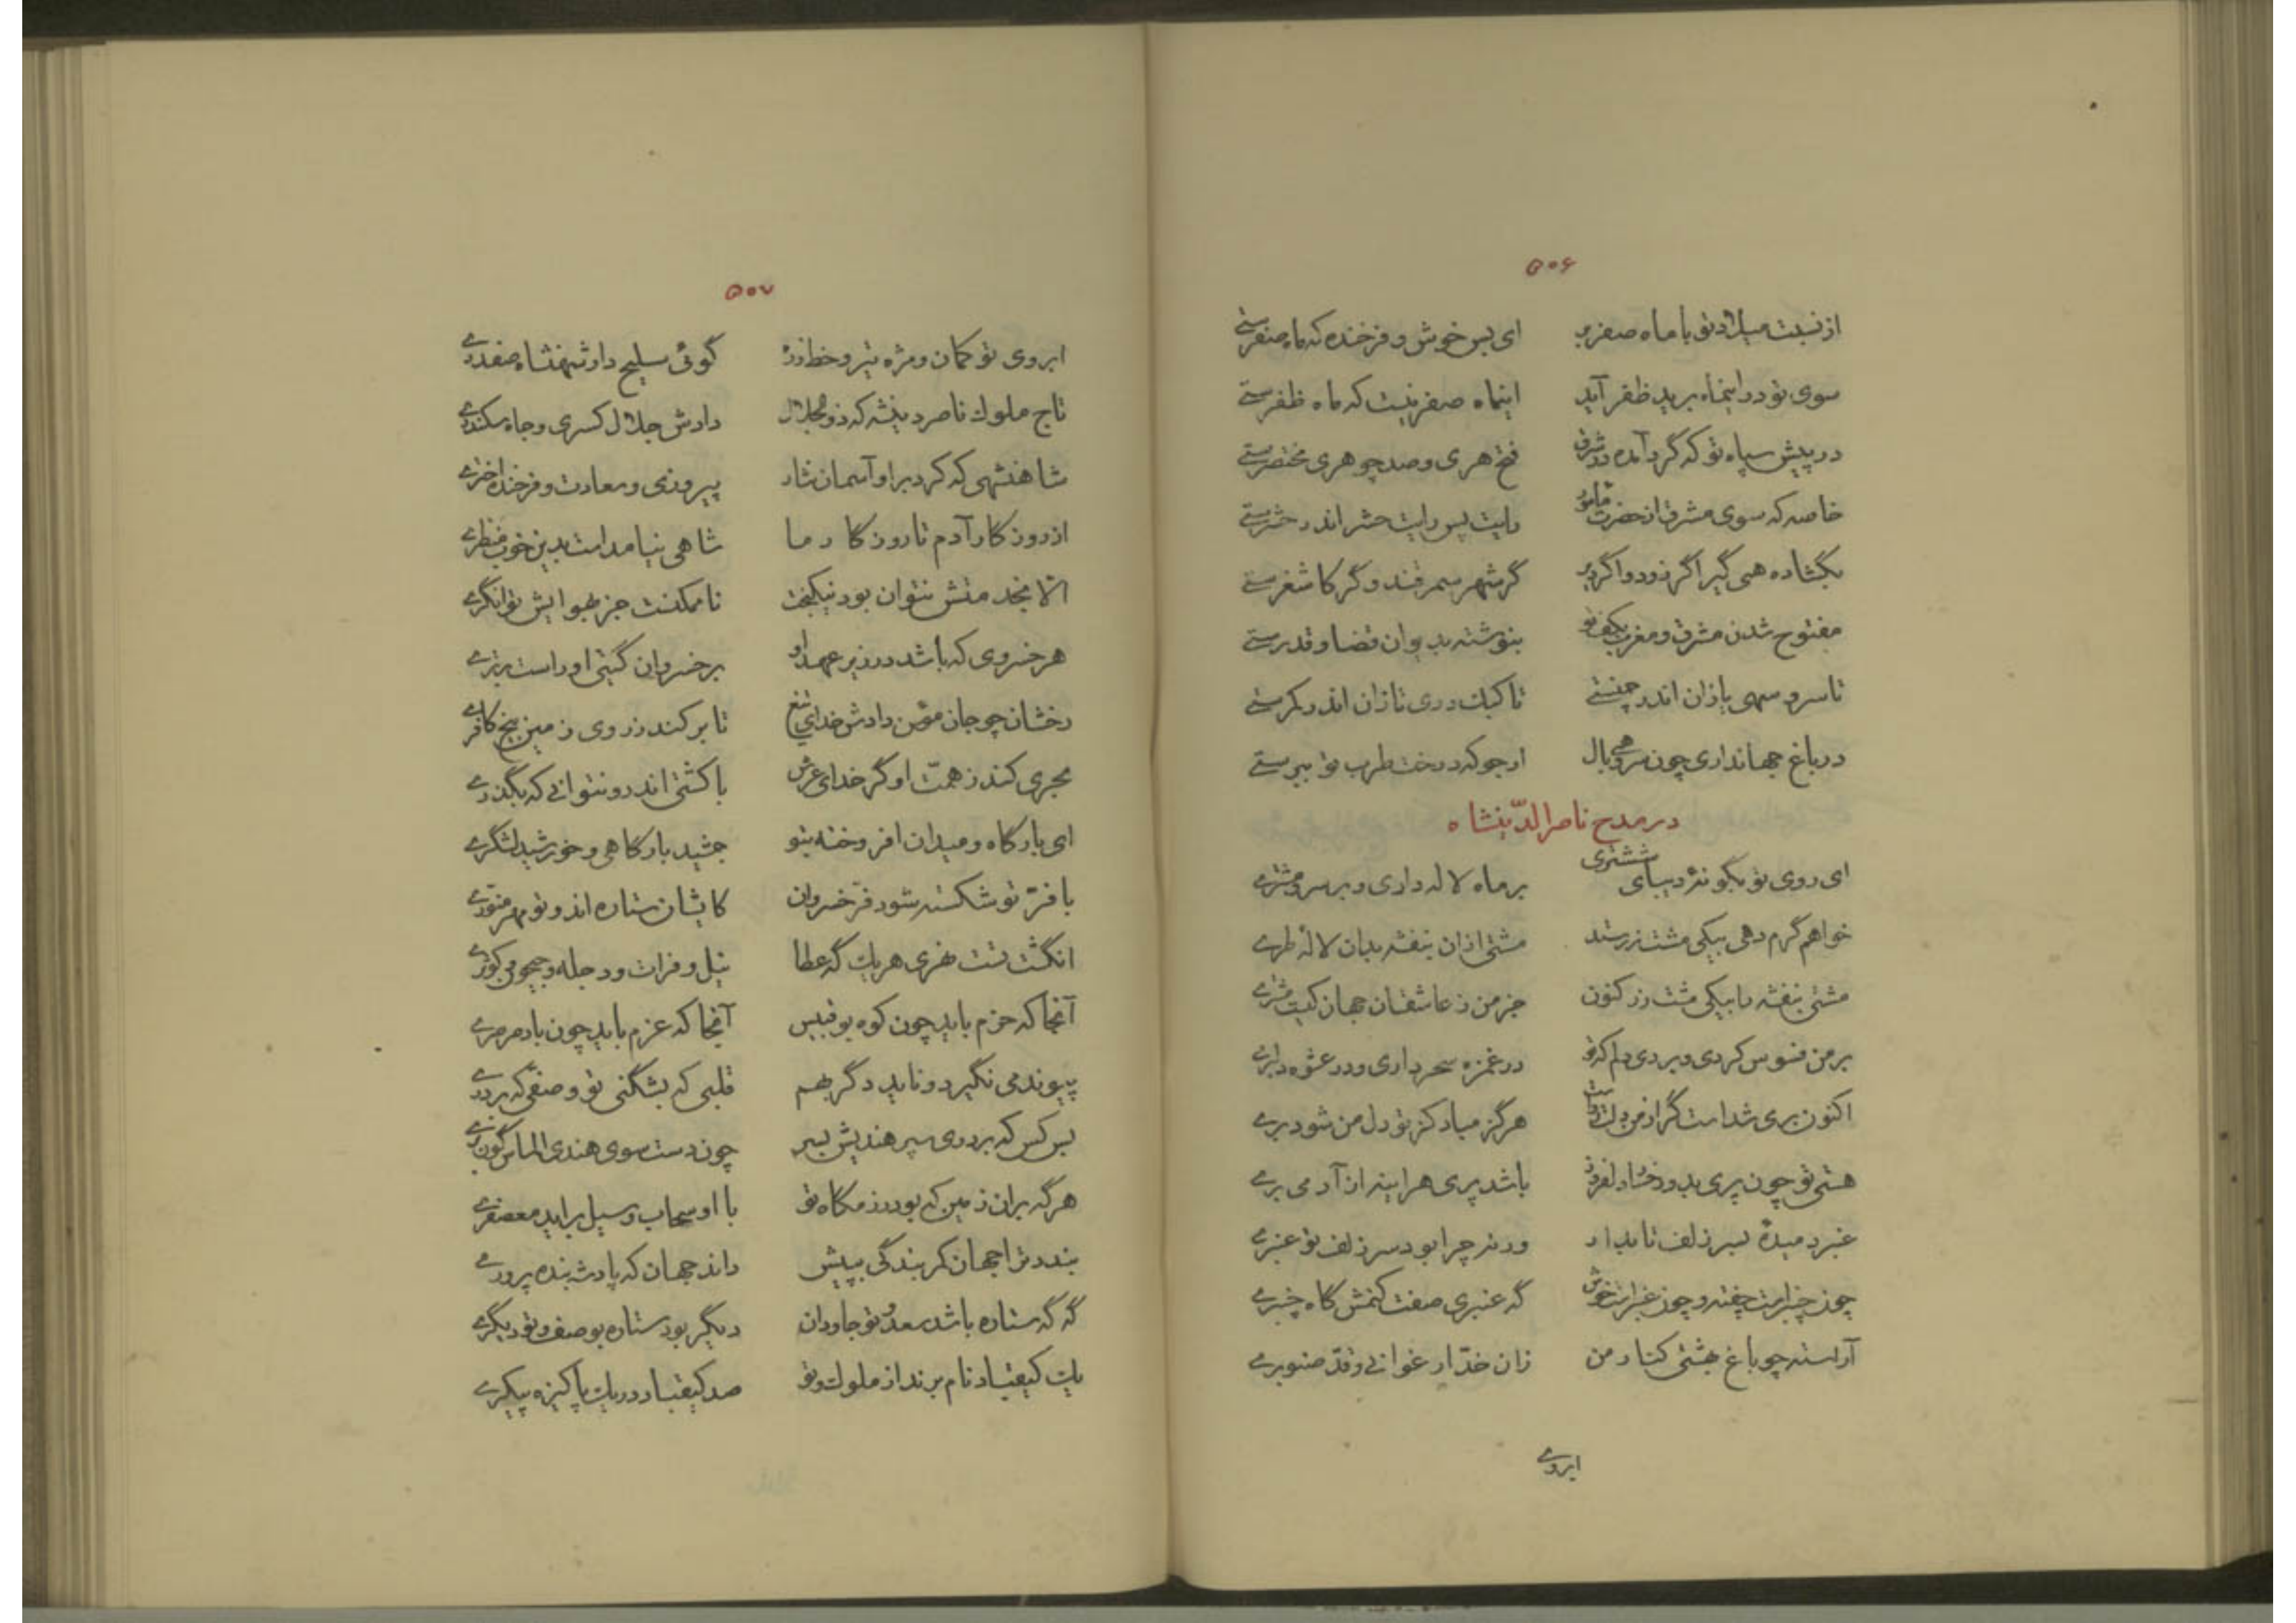 ۵۰۶
از نسبت میلاد تو با ماه صفر بر ای بس خوش و فرخنده که ماه صفرستی
سوی تو در اینماه برید ظفر آید اینماه صفر نیست که ماه ظفرستی
در پیش سپاه تو که گرد آمده در شرق فتح هری و صد چو هری مختصرستی
خاصه که سوی مشرق از حضرت مأمور رایت پس رایت حشر اندر حشرستی
بگشاده همی گیر اگر زود و اگر دیر گر شهر سمرقند و گر کاشغرستی
مفتوح شدن مشرق و مغرب بکف تو بنوشته بدیوان قضا و قدرستی
تا سرو سهی یازان اندر چمنستی تا کبک دری تازان اندر کمرستی
در باغ جهانداری چون سرو همی بال ارجو که درخت طرب تو ببرستی
در مدح ناصرالدّینشاه
ای روی تو بگونهٔ دیبای ششتری بر ماه لاله داری و بر سرو مشتری
خواهم گرم دهی بیکی مشت زر ستد مشتی ازان بنفشه بدان لالهٔ طری
مشتی بنفشه را بیکی مشت زر کنون جز من ز عاشقان جهان کیست مشتری
بر من فسوس کردی و بردی دلم که تو در غمزه سحر داری و در عشوه دلبری
اکنون بری شداست گر از من دلت رواست هرگز مباد کز تو دل من شود بری
هستی تو چون پری بدو رخسار دلفروز باشد پری هراینه از آدمی بری
عنبر دمیدهٔ بسر زلف تابدار ورنه چرا بود سر زلف تو عنبری
چون چنبرست چفته و چون عنبرست خوش گه عنبری صفت کنمش گاه چنبری
آراسته چو باغ بهشتی کنار من زان خدّ ارغوانی و قدّ صنوبری
ابروی
۵۰۷
ابروی تو کمان و مژه تیر و خط زره گوئی سلیح دار شهنشاه صفدری
تاج ملوک ناصر دینشه که ذوالجلال دادش جلال کسری و جاه سکندری
شاهنشهی که کرد بر او آسمان نثار پیروزی و سعادت و فرخنده اختری
از روزگار آدم تا روزگار ما شاهی نیامداست بدین خوب منظری
الا بخدمتش نتوان بود نیکبخت ناممکنست جز بهوایش توانگری
هر خسروی که باشد در زیر عهد او بر خسروان گیتی او راست برتری
رخشان چو جان مؤمن دادش خدای تیغ تا بر کند ز روی زمین بیخ کافری
بحری کند ز همّت او گر خدای عرش با کشتی اندرو نتوانی که بگذری
ای بارگاه و میدان افروخته بتو جمشید بارگاهی و خورشید لشگری
با فرّ تو شکسته شود فرّ خسروان کایشان ستاره اند و تو مهر منوّری
انگشت تست نهری هر یک گه عطا نیل و فرات و دجله و جیحون و کوثری
آنجا که حزم باید چون کوه بوقبیس آنجا که عزم باید چون باد صرصری
پیوند می نگیرد و ناید دگر بهم قلبی که بشکنی تو و صفی که بردری
بس کس که بر دوی سپر هندیش بسر چون دست سوی هندی الماس گون بری
هرگه بران زمین که بود رزمگاه تو با او سحاب و سیل براید معصفری
بندد ترا جهان کمر بندگی بپیش داند جهان که پادشه بنده پروری
گه گه ستاره باشد سعد و تو جاودان دیگر بود ستاره بوصف و تو دیگری
یک کیقباد نام برند از ملوک و تو صد کیقباد در یک پاکیزه پیکری